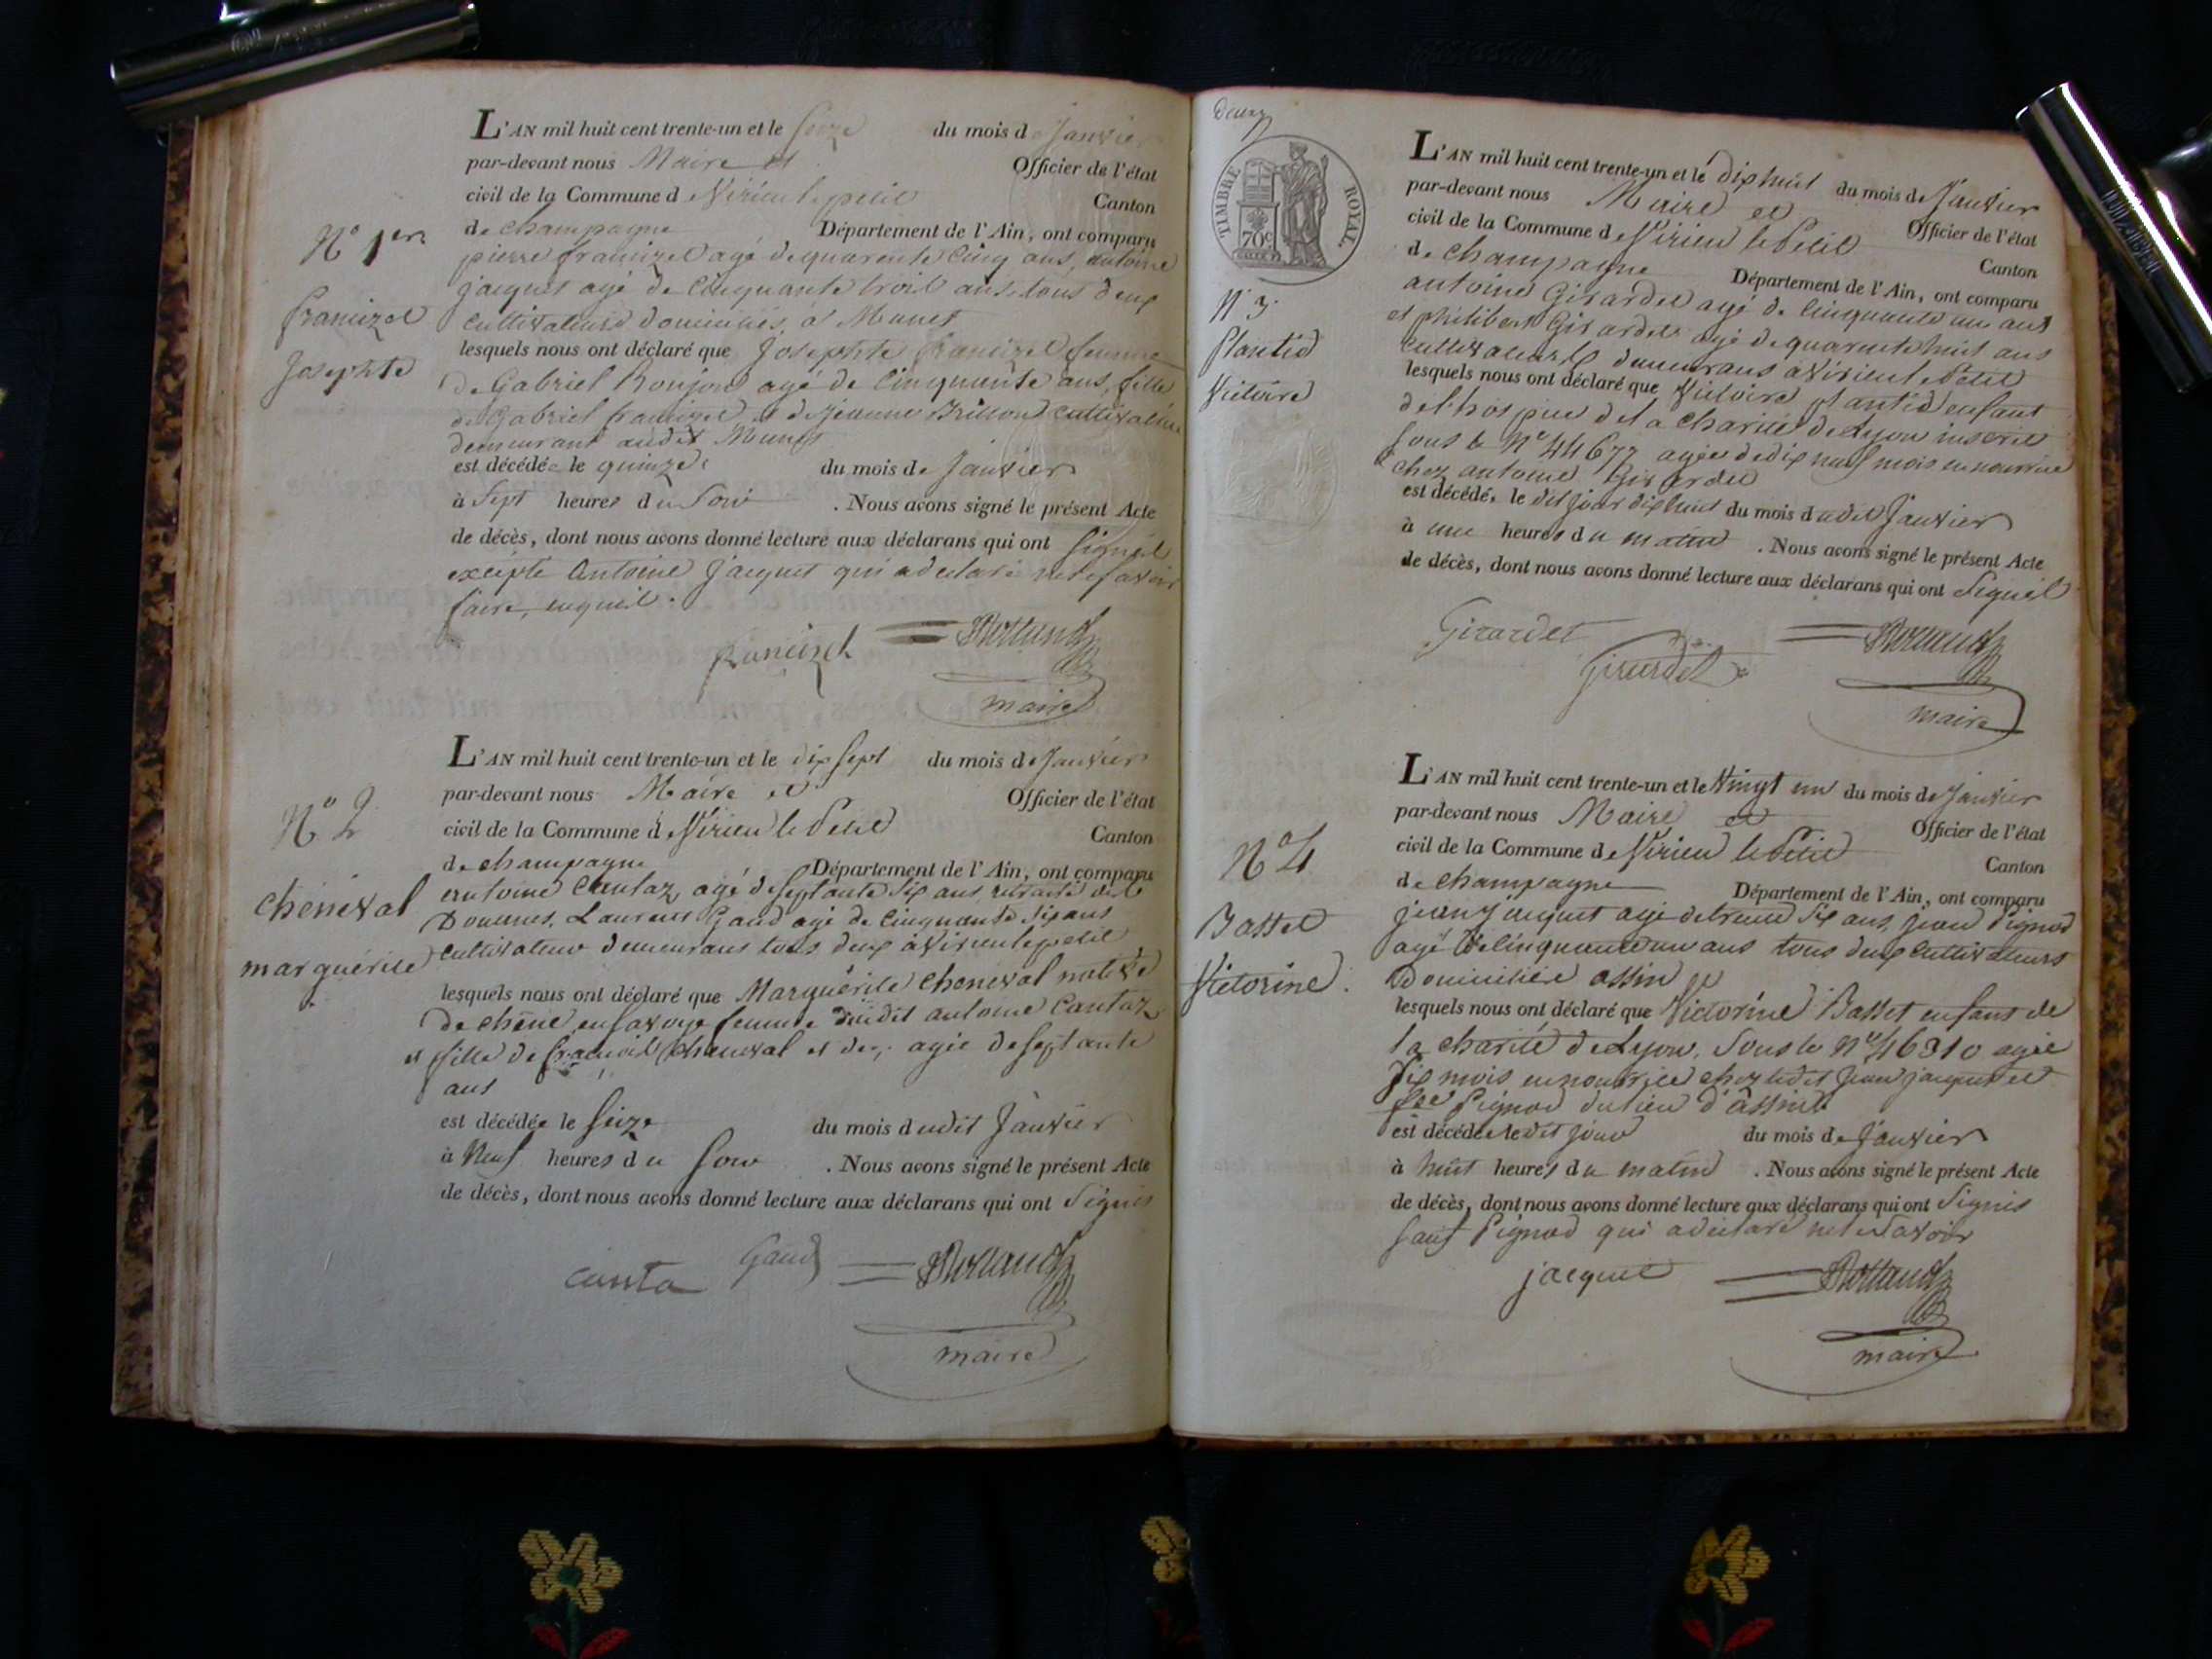 L'AN mil huit cent trente-un et le seize du mois de Janvier
par-devant nous Maire et Officier de l'état
civil de la Commune de Virieu le petit Canton
de champagne Département de l'Ain, ont comparu
N° 1er
pierre francizet agé de quarente cinq ans, antoine
jacquet agé de Cinquante trois ans tous deux
francizet
Cultivateurs domiciliés, a Munet
Josephte
lesquels nous ont déclaré que Josephte francizet femme
de Gabriel Bonjour agé de Cinquante ans, fille
de Gabriel francizet et de jeanne Cultivatrice
demeurant audit Munet
est décédée le quinze du mois de Janvier
à Sept heures du Soir . Nous avons signé le présent Acte
de décès, dont nous avons donné lecture aux déclarans qui ont Signés
excepte Antoine Jacquet qui a declaré ne le savoir
faire, enquis.
francizet Rolland
maire
L'AN mil huit cent trente-un et le dix sept du mois de Janvier
par-devant nous Maire et Officier de l'état
N° 2
civil de la Commune de Virieu le Petit Canton
de champagne Département de l'Ain, ont comparu
chenéval
antoine Cantaz, agé de septante six ans retraité des
Douanes, Laurent Gaud agé de Cinquante six ans
Cultivateur demeurans tous deux à Virieu le petit
marguérite
lesquels nous ont déclaré que Marguérite Cheneval native
de chêne en savoye femme dudit antoine Cantaz
et fille de francois Cheneval et de, agée de septante
ans
est décédée le seize du mois dudit Janvier
à Neuf heures du soir . Nous avons signé le présent Acte
de décès, dont nous avons donné lecture aux déclarans qui ont Signés
canta Gaud Rolland
maire
Deux
TIMBRE ROYAL
70c
L'AN mil huit cent trente-un et le dix huit du mois de Janvier
par-devant nous Maire et Officier de l'état
civil de la Commune de Virieu le Petit Canton
de champagne Département de l'Ain, ont comparu
N° 3.
antoine Girardet agé de Cinquante un ans
et philibert Girardet agé de quarente huit ans
Plantid
Cultivateurs demeurans a Virieu le Petit
Victoire
lesquels nous ont déclaré que Victoire plantid enfant
de l'hospice de la Charité de Lyon inscrit
sous le N° 44677 agée de dix neuf mois en nourrice
chez antoine Girardet
est décédée le dit jour dix huit du mois dudit Janvier
à une heures du matin . Nous avons signé le présent Acte
de décès, dont nous avons donné lecture aux déclarans qui ont Signés
Girardet Girardet Rolland
maire
L'AN mil huit cent trente-un et le Vingt un du mois de Janvier
par-devant nous Maire et Officier de l'état
civil de la Commune de Virieu le Petit Canton
N° 4
de champagne Département de l'Ain, ont comparu
Basset
jean jacquet agé de trente six ans, jean Pignod
agé de Cinquante un ans tous deux Cultivateurs
Victorine.
Domiciliés assin
lesquels nous ont déclaré que Victorine Basset enfans de
la charité de Lyon, Sous le N° 46310 agée
six mois en nourrice chez ledit Jean jacquet et
Pignod du lieu d'assin
est décédée ledit jour du mois de Janvier
à huit heures du matin . Nous avons signé le présent Acte
de décès, dont nous avons donné lecture aux déclarans qui ont Signés
sauf Pignod qui a déclaré ne le savoir
jacquet Rolland
maire